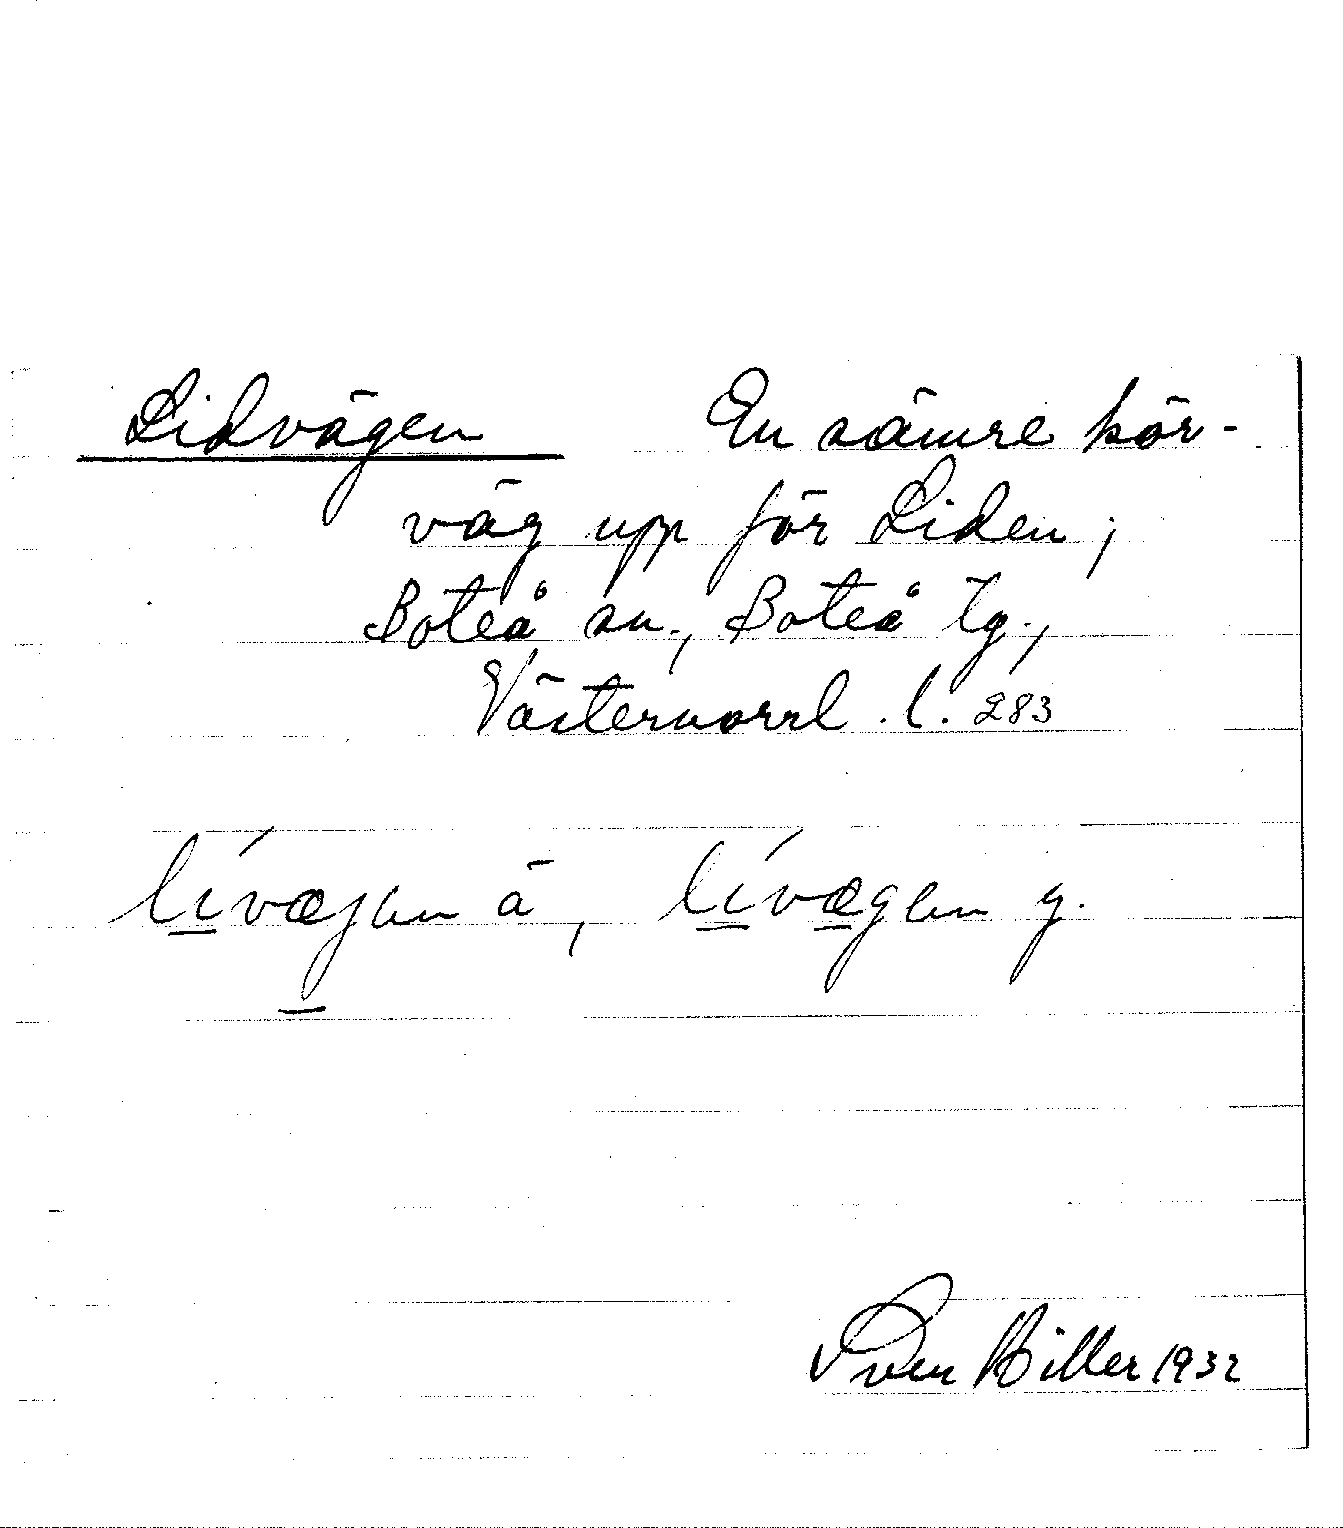 Lidvägen En sämre kör-
väg upp för Liden,
Boteå sn., Boteå tg.,
Västernorrl. l. 283
lívæjen ä, lívægen y.
Sven Hiller 1932